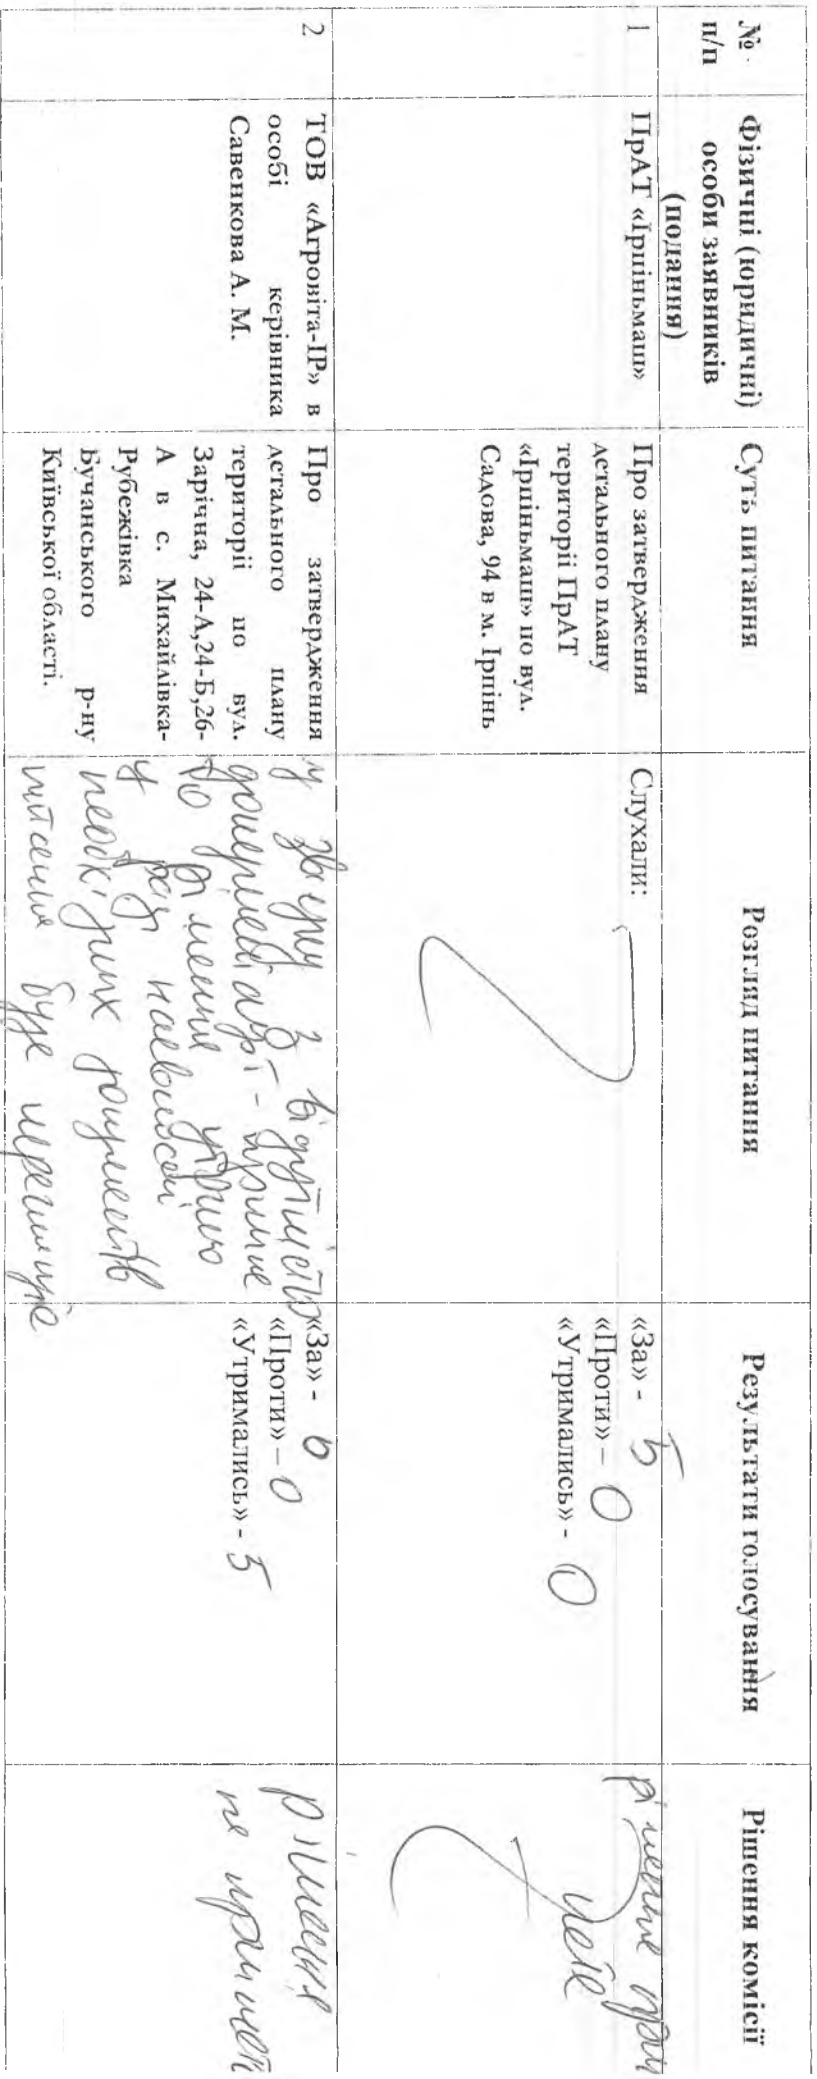 № п/п
Фізичні (юридичні) особи заявників (подання)
Суть питання
Розгляд питання
Результати голосування
Рішення комісії
1
ПрАТ «Ірпіньмаш»
Про затвердження
детального плану
території ПрАТ
«Ірпіньмаш» по вул.
Садова, 94 в м. Ірпінь
Слухали:
«За» - 5
«Проти» – 0
«Утримались» - 0
рішення прий
няте
2
ТОВ «Агровіта-ІР» в
особі керівника
Савенкова А. М.
Про затвердження
детального плану
території по вул.
Зарічна, 24-А,24-Б,26-
А в с. Михайлівка-
Рубежівка
Бучанського р-ну
Київської області.
у зв'язку з відсутністю
рішення
у разі наявності
необхідних документів
питання буде
«За» - 0
«Проти» – 0
«Утримались» - 5
рішення
не прийняте